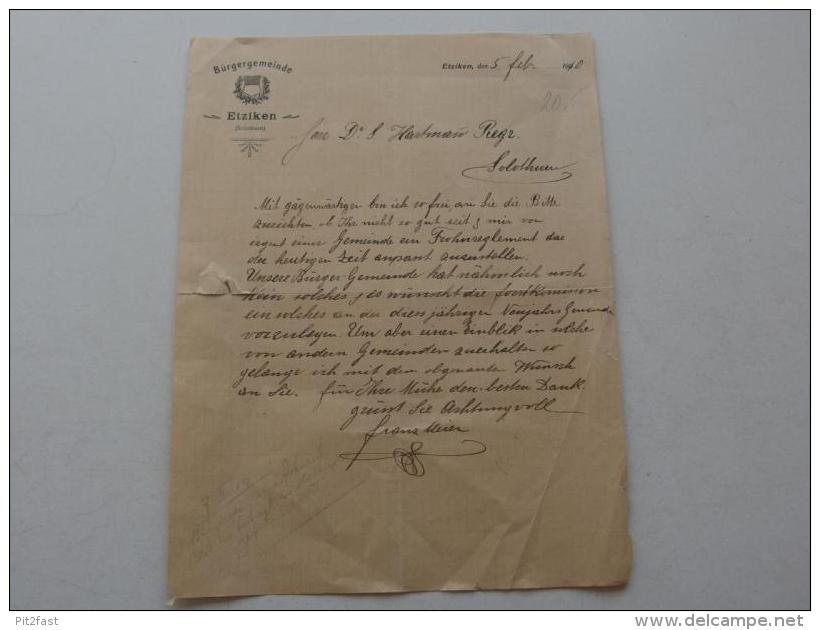 Bürgergemeinde
Etziken
(Solothurn)
Etziken, den 5. Feb. 1910
20.
Herr Dr. S. Hartman Regr.
Solothurn
Mit gägenwärtigen bin ich so frei, an Sie die Bitte
zurichten ob Ihr nicht so gut seit & mir von
irgent einer Gemeinde ein Frohnreglement das
der heutigen Zeit anpast zuzustellen.
Unsere Bürger Gemeinde hat nähmlich noch
kein solches, & es wünscht die Forstkomision
ein solches an der diesjährigen Neujahrs Gemeinde
vorzulagen. Um aber einen Einblik in solche
von andern Gemeinden zuerhalten so
gelange ich mit dem obgenanten Wunsch
an Sie. für Ihre Mühe den besten Dank.
grüsst Sie Achtungvoll
Franz Meier
Pit2fast
www.delcampe.net